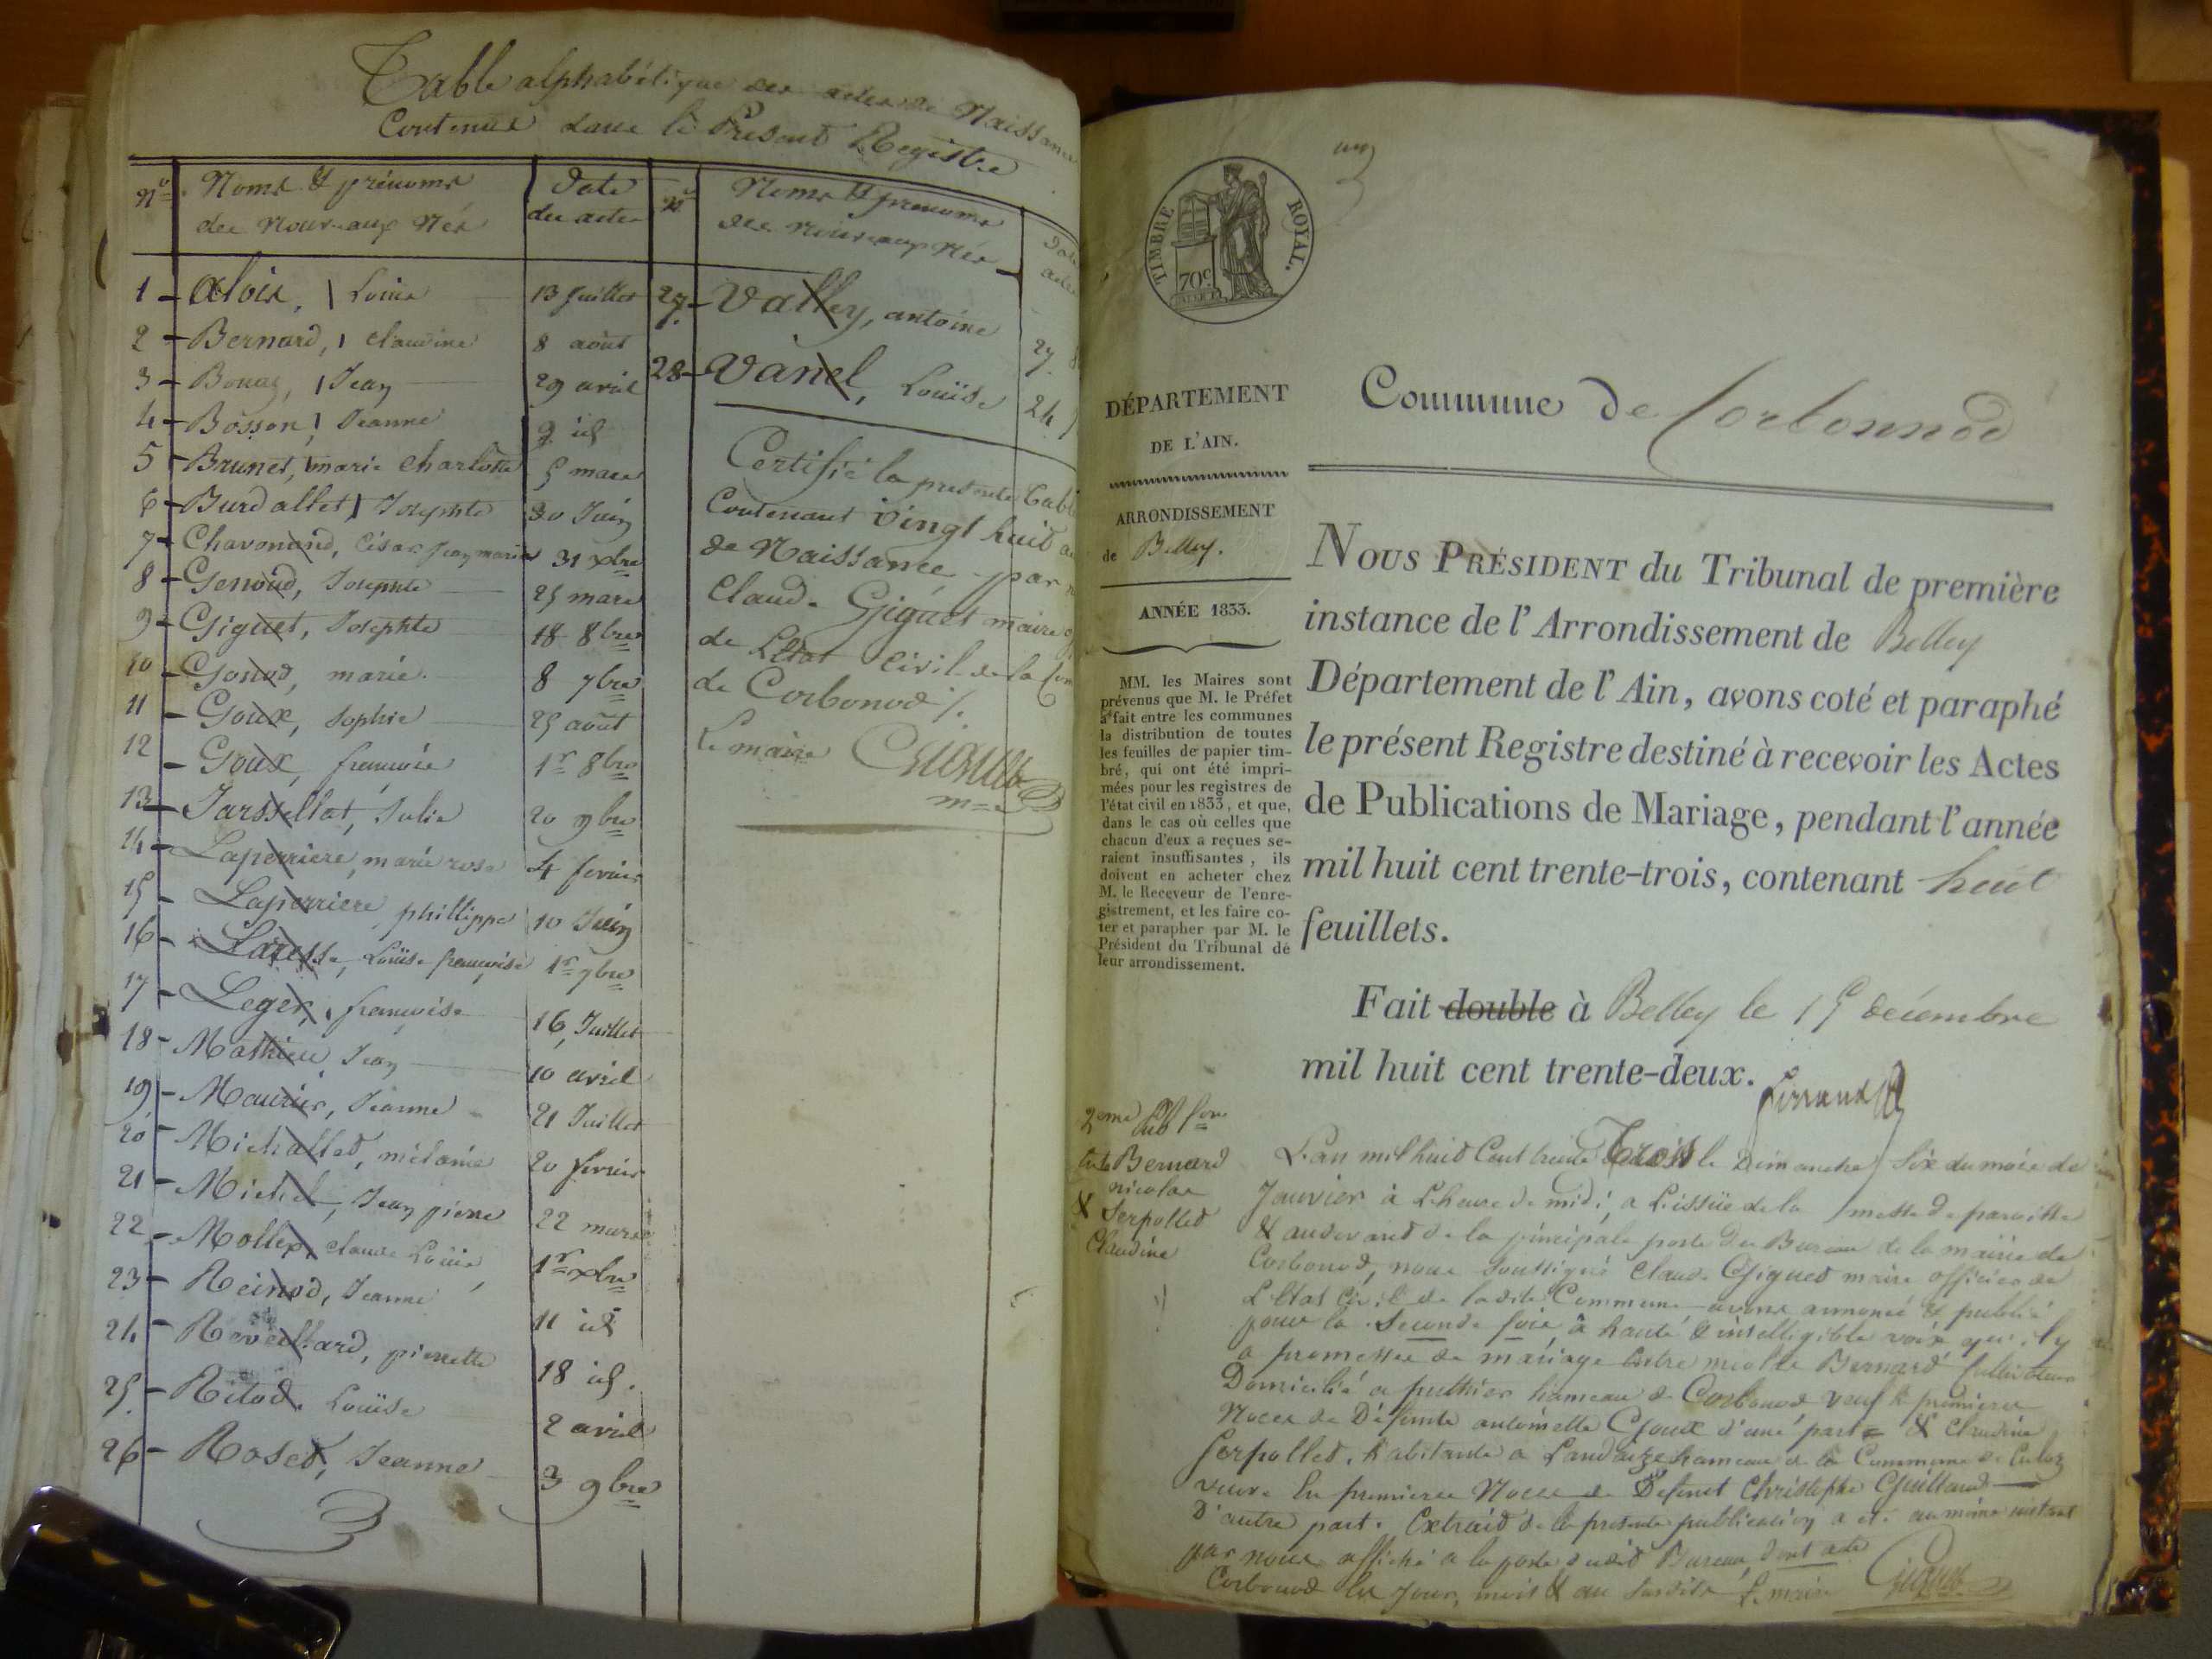 Table alphabétique des actes de Naissance
Contenue dans le Présent Registre
N° Noms & prénoms des Nouveaux Nés date des actes
1 - Alois, Louise 13 Juillet
2 - Bernard, Claudine 8 août
3 - Jean 29 avril
4 - Bosson, Jeanne 9 id
5 - Brunet, marie Charlotte 5 mars
6 - Burdallet, Josephte 30 Juin
7 - Chavonand, César Jean marie 31 xbre
8 - Genoud, Josephte 25 mars
9 - Giguet, Josephte 18 8bre
10 - Gonod, marie 8 7bre
11 - Goux, Sophie 25 août
12 - Goux, françoise 1er 8bre
13 - Jarssellat, Julie 20 9bre
14 - Laperriere, marie rose 4 fevrier
15 - Laperriere, phillippe 10 Juin
16 - Louise françoise 1er 7bre
17 - Leger, françoise 16 Juillet
18 - Mathieu, Jean 10 avril
19 - Jeanne 21 Juillet
20 - Michallet, mélanie 20 fevrier
21 - Michel, Jean pierre 22 mars
22 - Mollex, Claude Louis 1er xbre
23 - Reinod, Jeanne 11 id
24 - Reveillard, pierrette 18 id.
25 - Louise 2 avril
26 - Roset, Jeanne 3 9bre
N° Noms & prenoms des nouveaux Nés
27 - Valley, antoine 27
28 - Vanel, Louise 24
Certifié la presente Tabl
Contenant vingt huit
de Naissance par
Claude Giguet maire
de L'Etat Civil de la
de Corbonod ./.
Le maire Giguet
TIMBRE ROYAL.
70c
Commune de Corbonnod
DÉPARTEMENT
DE L'AIN.
ARRONDISSEMENT
de Belley.
ANNÉE 1833.
MM. les Maires sont
prévenus que M. le Préfet
a fait entre les communes
la distribution de toutes
les feuilles de papier tim-
bré, qui ont été impri-
mées pour les registres de
l'état civil en 1833, et que,
dans le cas où celles que
chacun d'eux a reçues se-
raient insuffisantes, ils
doivent en acheter chez
M. le Receveur de l'enre-
gistrement, et les faire co-
ter et parapher par M. le
Président du Tribunal de
leur arrondissement.
NOUS PRÉSIDENT du Tribunal de première
instance de l'Arrondissement de Belley
Département de l'Ain, avons coté et paraphé
le présent Registre destiné à recevoir les Actes
de Publications de Mariage, pendant l'année
mil huit cent trente-trois, contenant huit
feuillets.
Fait double à Belley le 15 décembre
mil huit cent trente-deux.
2eme
Bernard
nicolas
& Serpollet
Claudine
L'an mil huit Cent trente Trois le Dimanche Six du mois de
Janvier à L'heure de midi, a L'issüe de la messe de paroisse
& au devant de la principale porte du Bureau de la mairie de
Corbonod, nous Soussigné Claude Giguet maire officier de
L'Etat Civil de ladite Commune avons annoncé & publié
pour la Seconde fois, à haute & intelligible voix qu'il y
a promesse de mariage Entre nicolas Bernard Cultivateur
Domicilié a hameau de Corbonod veuf En premieres
Noces de Défunte antoinette Goux d'une part = & Claudine
Serpollet, habitante a Landaize hameau de la Commune de Culoz
veuve En premieres Noces de Defunt Christophe Guillard
D'autre part. Extrait de la presente publication a été au même instant
par nous affiché a la porte dudit Bureau, dont acte
Corbonod Les Jour, mois & an Susdits Le maire Giguet